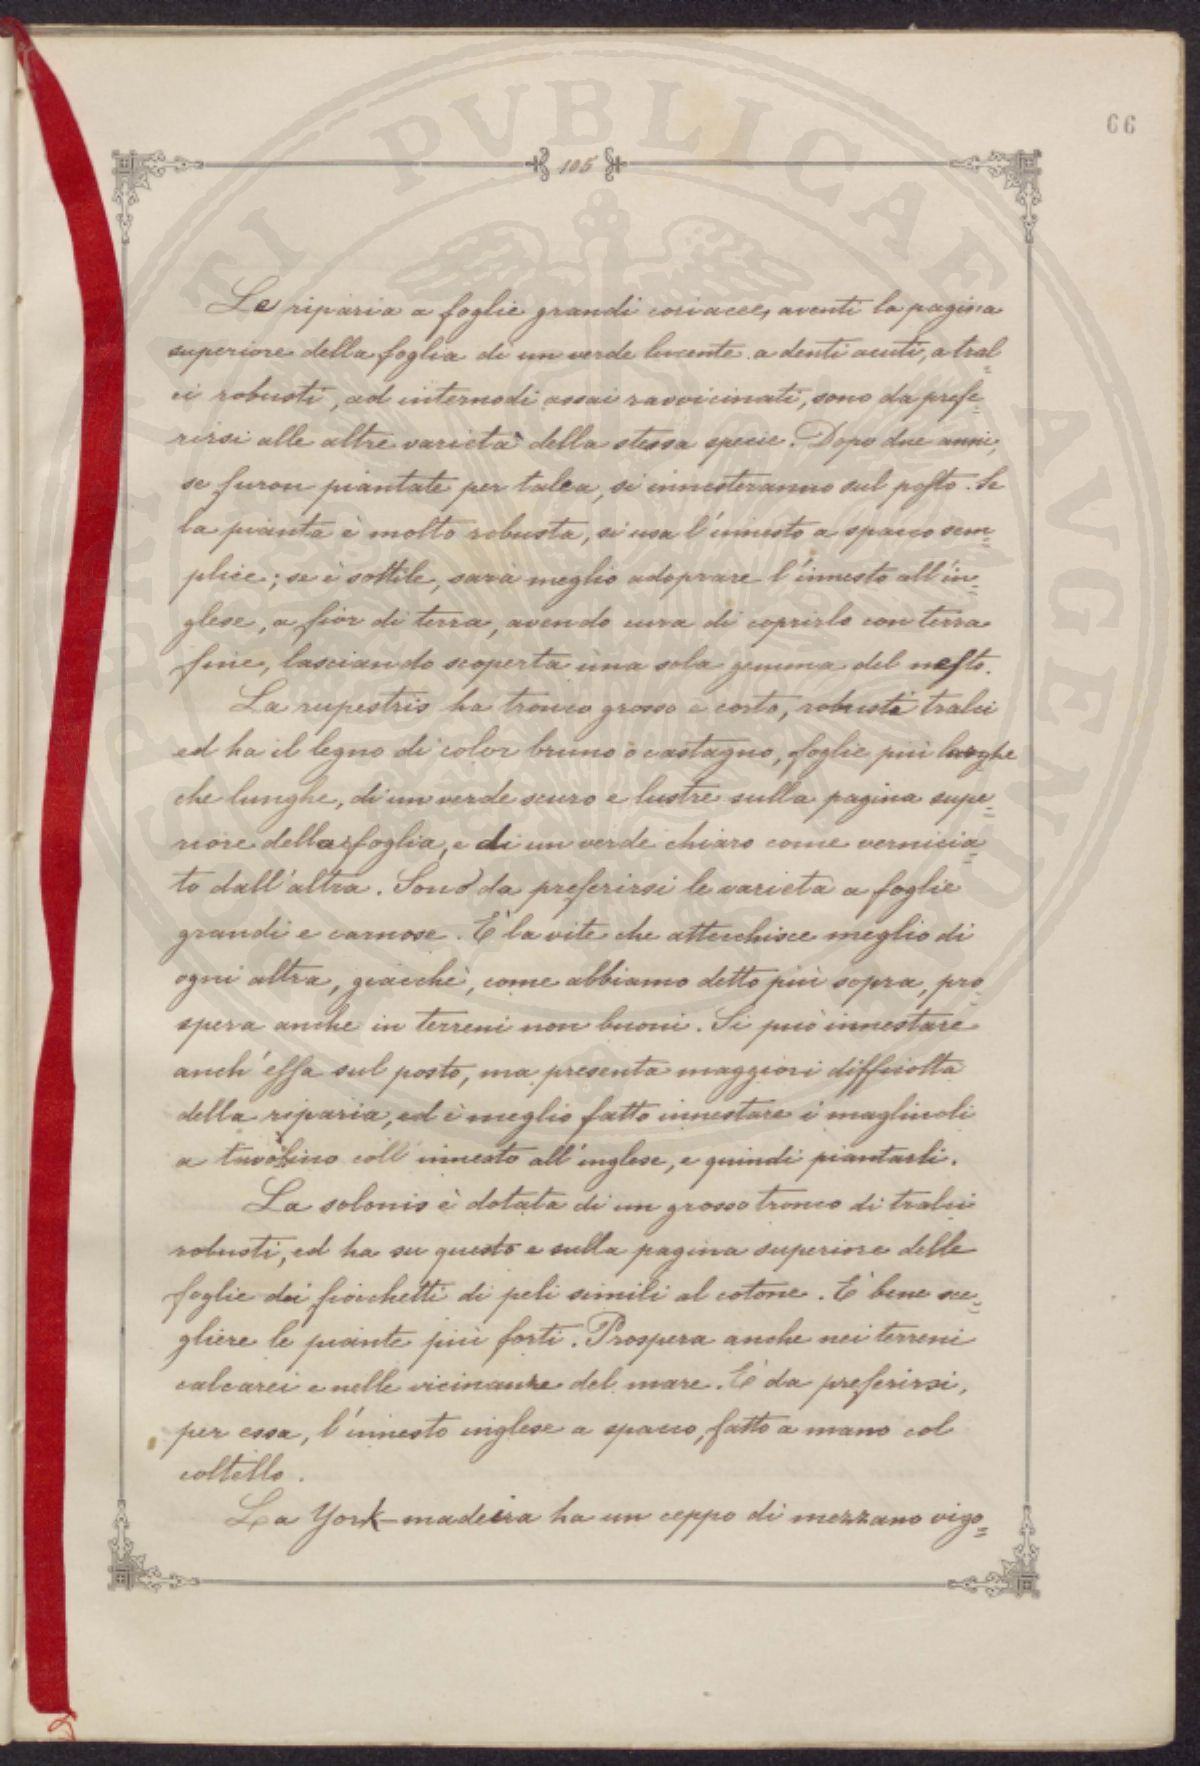 66
105
Le riparia a foglie grandi coriacee, aventi la pagina
superiore della foglia di un verde lucente a denti acuti, a tral=
ci robusti, ad internodi assai ravvicinati, sono da prefe=
rirsi alle altre varietà della stessa specie. Dopo due anni,
se furon piantate per talea, si innesteranno sul posto. Se
la pianta è molto robusta, si usa l'innesto a spacco sem=
plice; se è sottile, sarà meglio adoprare l'innesto all'in=
glese, a fior di terra, avendo cura di coprirlo con terra
fine, lasciando scoperta una sola gemma del nesto.
La rupestris ha tronco grosso e corto, robusti tralci
ed ha il legno di color bruno o castagno, foglie più larghe
che lunghe, di un verde scuro e lustre sulla pagina supe=
riore della foglia, e di un verde chiaro come vernicia=
to dall'altra. Sono da preferirsi le varietà a foglie
grandi e carnose. È la vite che attecchisce meglio di
ogni altra, giacchè, come abbiamo detto più sopra, pro=
spera anche in terreni non buoni. Si può innestare
anch'essa sul posto, ma presenta maggiori difficoltà
della riparia, ed è meglio fatto innestare i magliuoli
a tavolino coll'innesto all'inglese, e quindi piantarli.
La solonis è dotata di un grosso tronco di tralci
robusti, ed ha su questo e sulla pagina superiore delle
foglie dei fiocchetti di peli simili al cotone. È bene sce=
gliere le piante più forti. Prospera anche nei terreni
calcarei e nelle vicinanze del mare. È da preferirsi,
per essa, l'innesto inglese a spacco, fatto a mano col
coltello.
La York-madeira ha un ceppo di mezzano vigo=
PUBLICAE AUGENDO